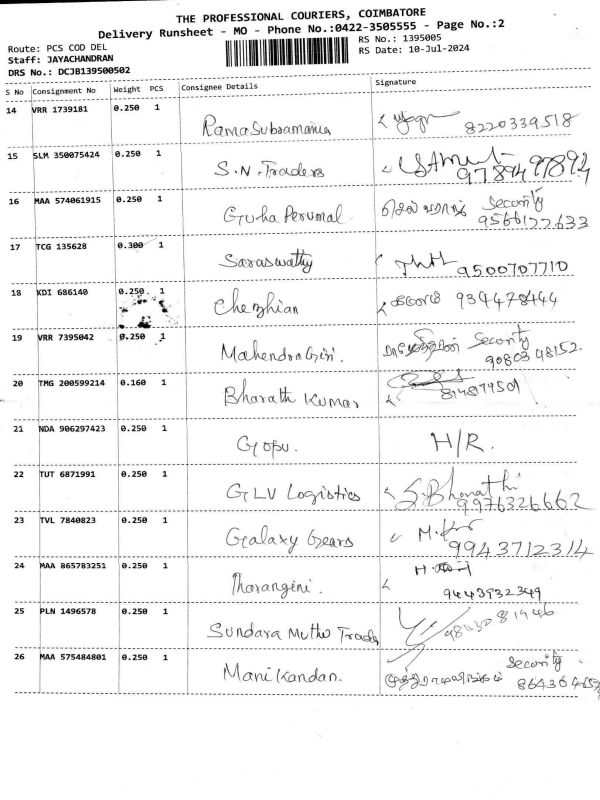 THE PROFESSIONAL COURIERS, COIMBATORE
Delivery Runsheet - MO - Phone No.:0422-3505555 - Page No.:2
Route: PCS COD DEL
RS No.: 1395005
Staff: JAYACHANDRAN
RS Date: 10-Jul-2024
DRS No.: DCJB139500502
S No Consignment No Weight PCS Consignee Details Signature
14 VRR 1739181 0.250 1 Rama Subramania 8220339518
15 SLM 350075424 0.250 1 S.N.Traders 9789497894
16 MAA 574061915 0.250 1 Guha Perumal செல்வராஜ் Security
9566177633
17 TCG 135628 0.300 1 Saraswathy 9500707710
18 KDI 686140 0.250 1 Chezhian 934478444
19 VRR 7395042 0.250 1 MahendraGiri. Security
9080348152.
20 TMG 200599214 0.160 1 Bharath Kumar
21 NDA 906297423 0.250 1 Gopu. H/R.
22 TUT 6871991 0.250 1 GLV Logistics S.Bharathi
9976326662
23 TVL 7840823 0.250 1 Galaxy Gears
9943712314
24 MAA 865783251 0.250 1 Tharangini.
9443932349
25 PLN 1496578 0.250 1 Sundara Muthu Trade
26 MAA 575484801 0.250 1 Manikandan. Security